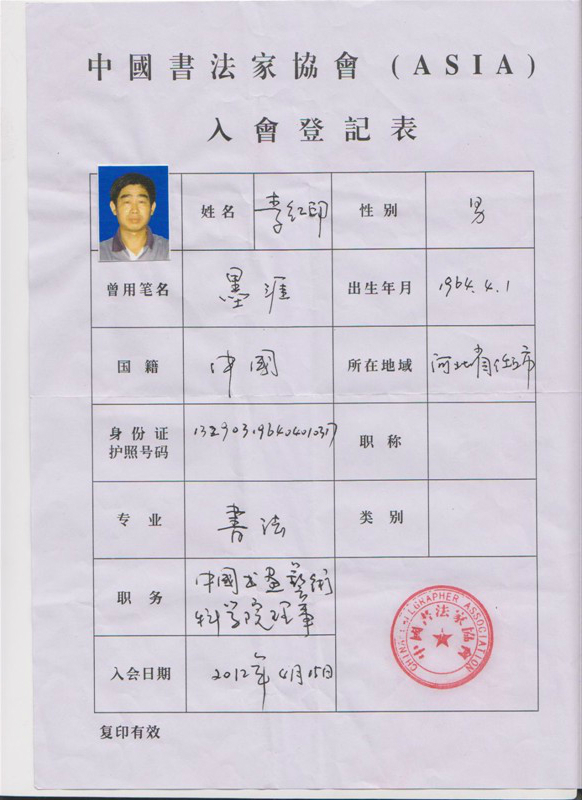 中國書法家協會 (ASIA)
入會登記表
姓名 李红印 性别 男
曾用笔名 墨涯 出生年月 1964.4.1
国籍 中國 所在地域 河北省任丘市
身份证
护照号码 132903196404010317 职称
专业 書法 类别
职务 中國书画藝術
科学院理事
入会日期 2012年4月15日
CHINA CALLIGRAPHER ASSOCIATION
中国書法家協會
复印有效